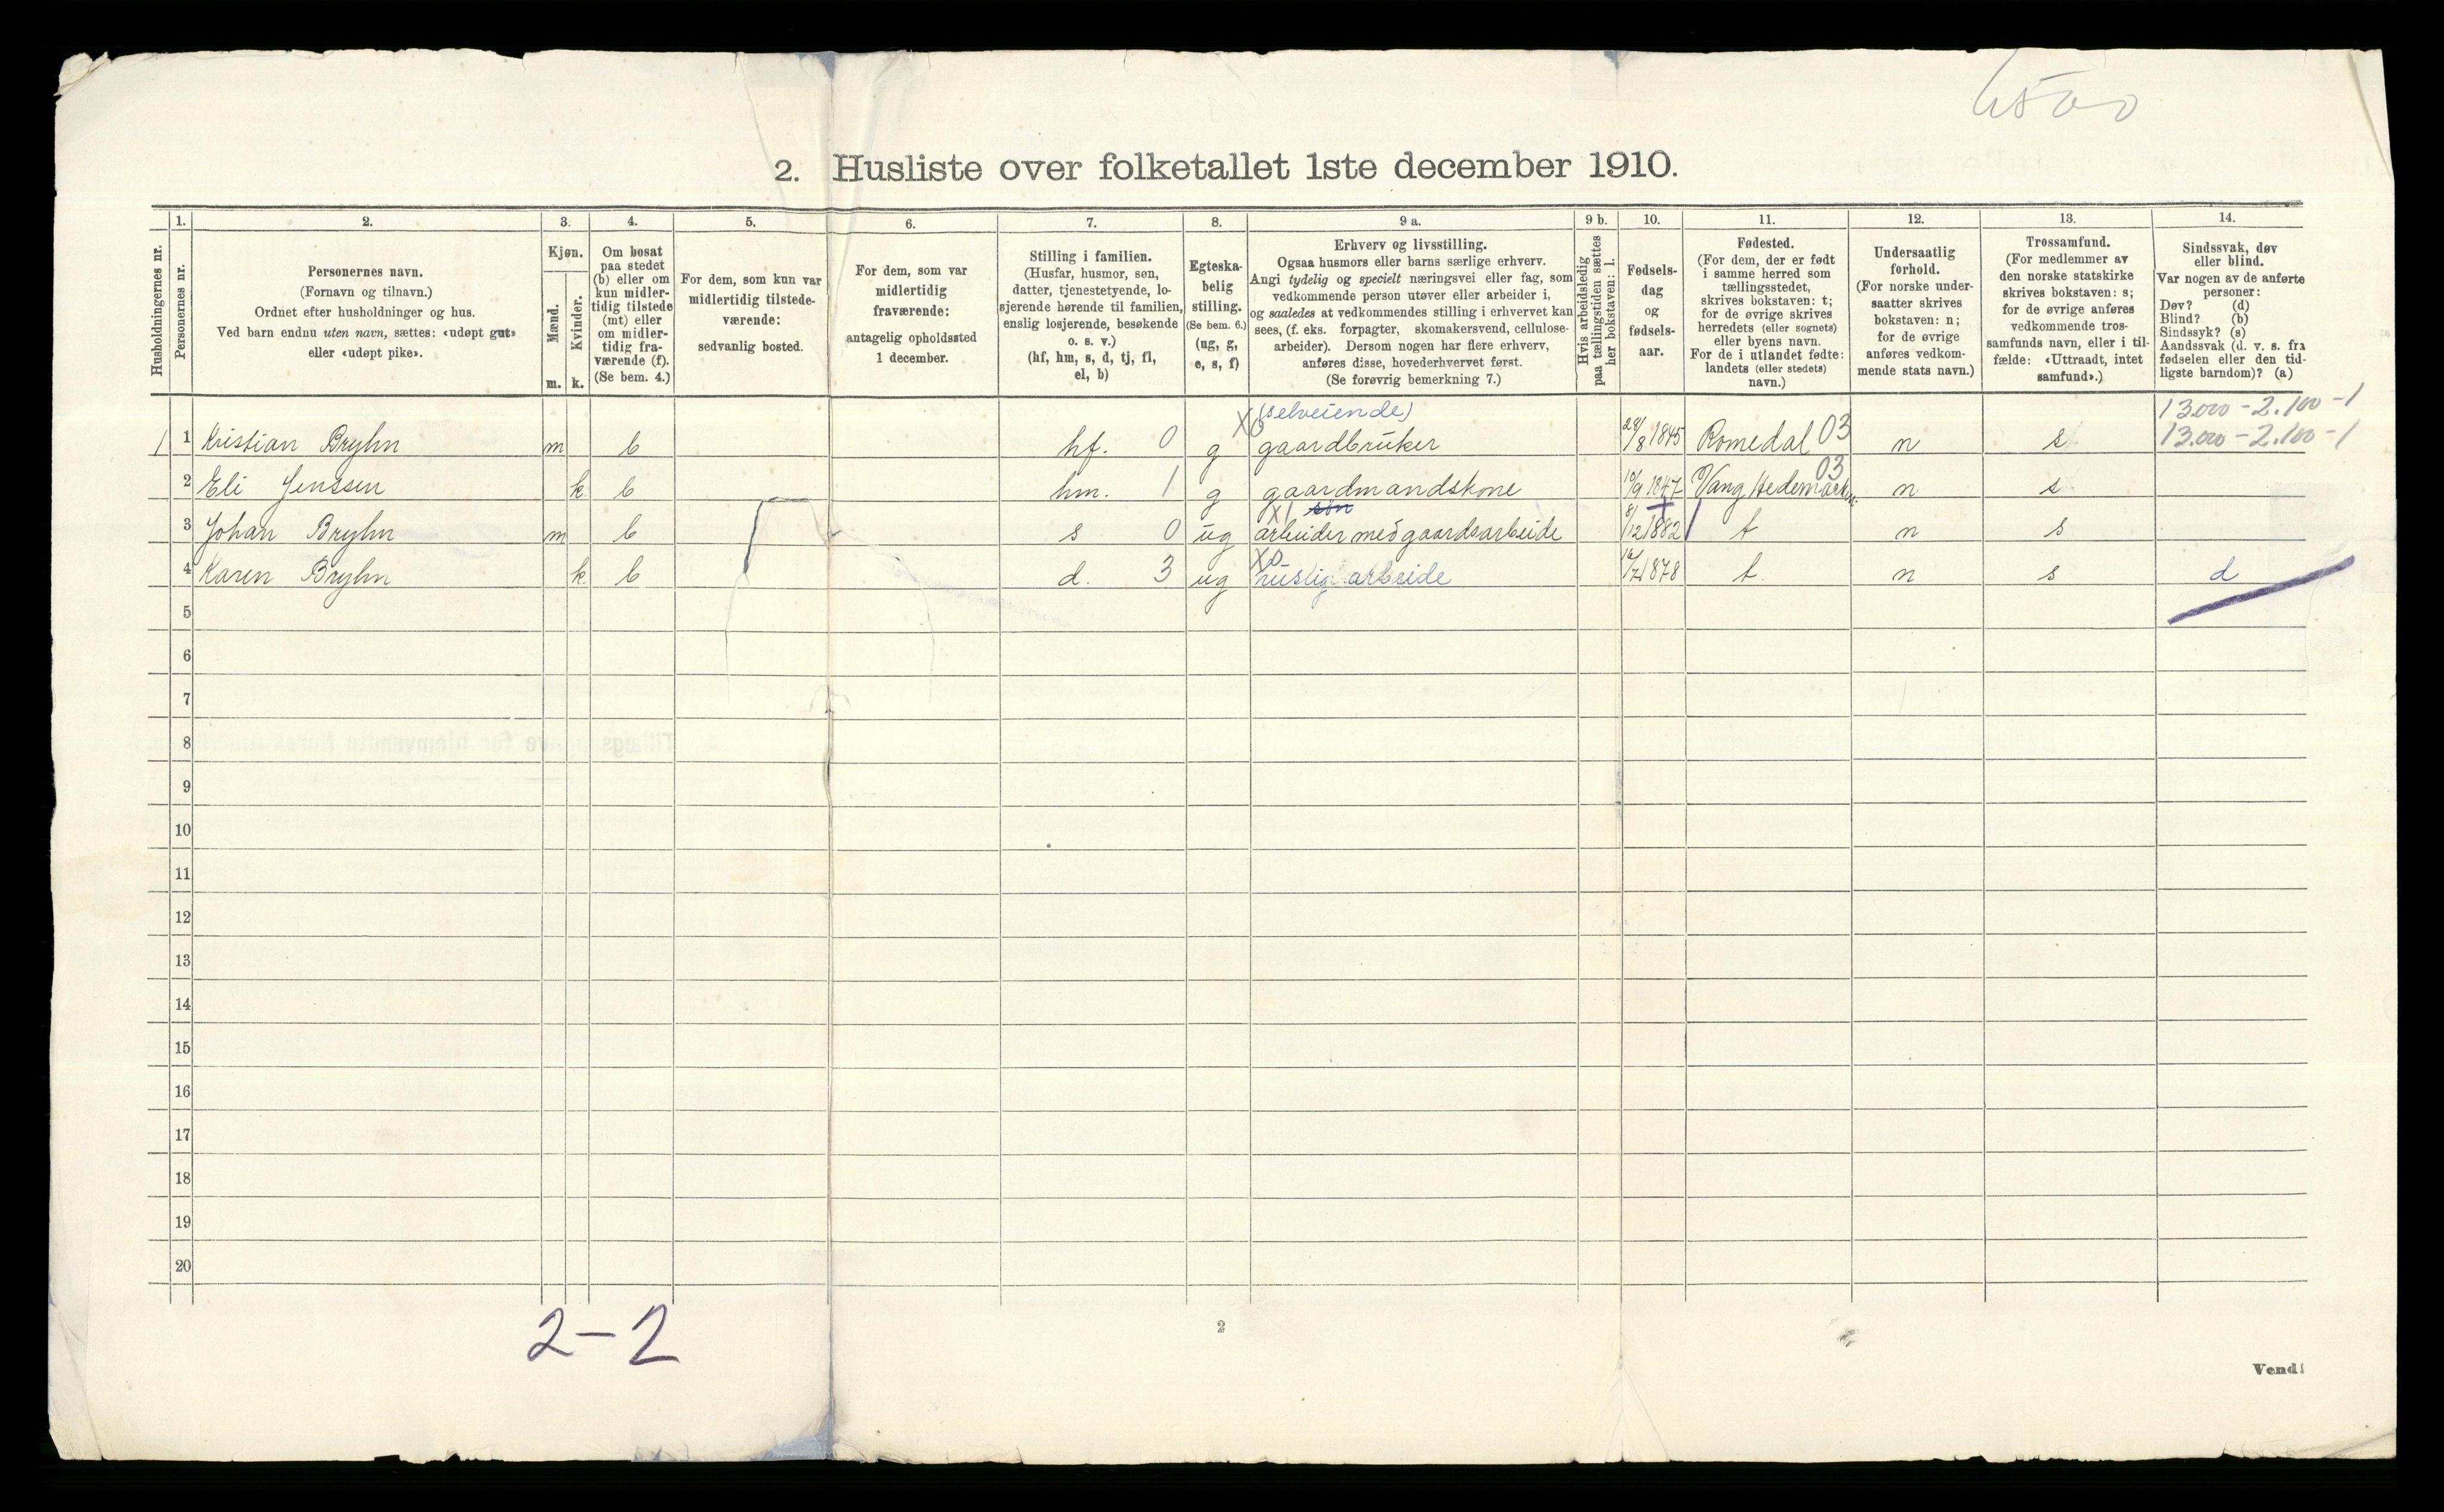 4500
2. Husliste over folketallet 1ste december 1910.
Husholdningernes nr.
1. Personernes nr.
2. Personernes navn. (Fornavn og tilnavn.) Ordnet efter husholdninger og hus. Ved barn endnu uten navn, sættes: «udøpt gut» eller «udøpt pike».
3. Kjøn. Mænd. m. Kvinder. k.
4. Om bosat paa stedet (b) eller om kun midler-tidig tilstede (mt) eller om midler-tidig fra-værende (f). (Se bem. 4.)
5. For dem, som kun var midlertidig tilstede-værende: sedvanlig bosted.
6. For dem, som var midlertidig fraværende: antagelig opholdssted 1 december.
7. Stilling i familien. (Husfar, husmor, søn, datter, tjenestetyende, lo-sjerende hørende til familien, enslig losjerende, besøkende o. s. v.) (hf, hm, s, d, tj, fl, el, b)
8. Egteska-belig stilling. (Se bem. 6.) (ug, g, e, s, f)
9 a. Erhverv og livsstilling. Ogsaa husmors eller barns særlige erhverv. Angi tydelig og specielt næringsvei eller fag, som vedkommende person utøver eller arbeider i, og saaledes at vedkommendes stilling i erhvervet kan sees, (f. eks. forpagter, skomakersvend, cellulose-arbeider). Dersom nogen har flere erhverv, anføres disse, hovederhvervet først. (Se forøvrig bemerkning 7.)
9 b. Hvis arbeidsledig paa tællingstiden sættes her bokstaven: l.
10. Fødsels-dag og fødsels-aar.
11. Fødested. (For dem, der er født i samme herred som tællingsstedet, skrives bokstaven: t; for de øvrige skrives herredets (eller sognets) eller byens navn. For de i utlandet fødte: landets (eller stedets) navn.)
12. Undersaatlig forhold. (For norske under-saatter skrives bokstaven: n; for de øvrige anføres vedkom-mende stats navn.)
13. Trossamfund. (For medlemmer av den norske statskirke skrives bokstaven: s; for de øvrige anføres vedkommende tros-samfunds navn, eller i til-fælde: «Uttraadt, intet samfund».)
14. Sindssvak, døv eller blind. Var nogen av de anførte personer: Døv? (d) Blind? (b) Sindssyk? (s) Aandssvak (d. v. s. fra fødselen eller den tid-ligste barndom)? (a)
(selveiende) 13.000 - 2.100 - 1
1 1 Kristian Bryhn m b hf. 0 g X0 gaardbruker 28/8 1845 Romedal 03 n s 13.000 - 2.100 - 1
2 Eli Jenssen k b hm. 1 g gaardmandskone 10/9 1847 Vang Hedemarken 03 n s
X1 søn
3 Johan Bryhn m b s 0 ug arbeider med gaardsarbeide 8/12 1882 t n s
4 Karen Bryhn k b d. 3 ug X0 huslig arbeide 16/7 1878 t. n s d
5
6
7
8
9
10
11
12
13
14
15
16
17
18
19
20
2-2
2
Vend!